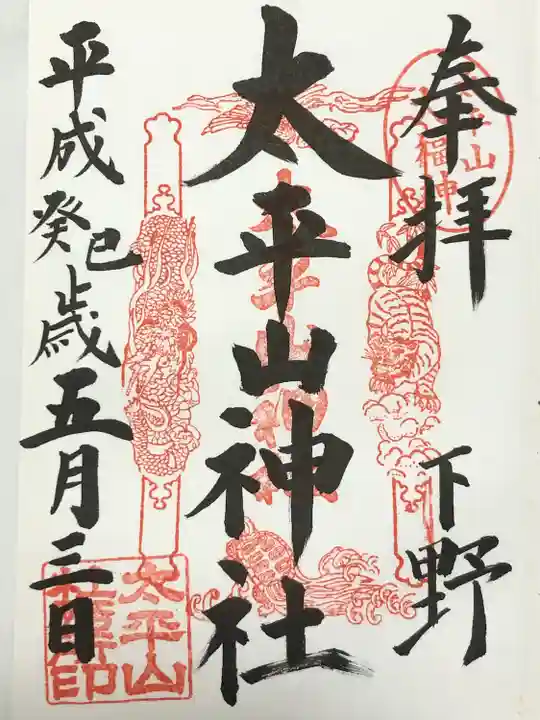 奉拝
下野
太平山神社
平成癸巳歳五月三日
太平山
社璽印